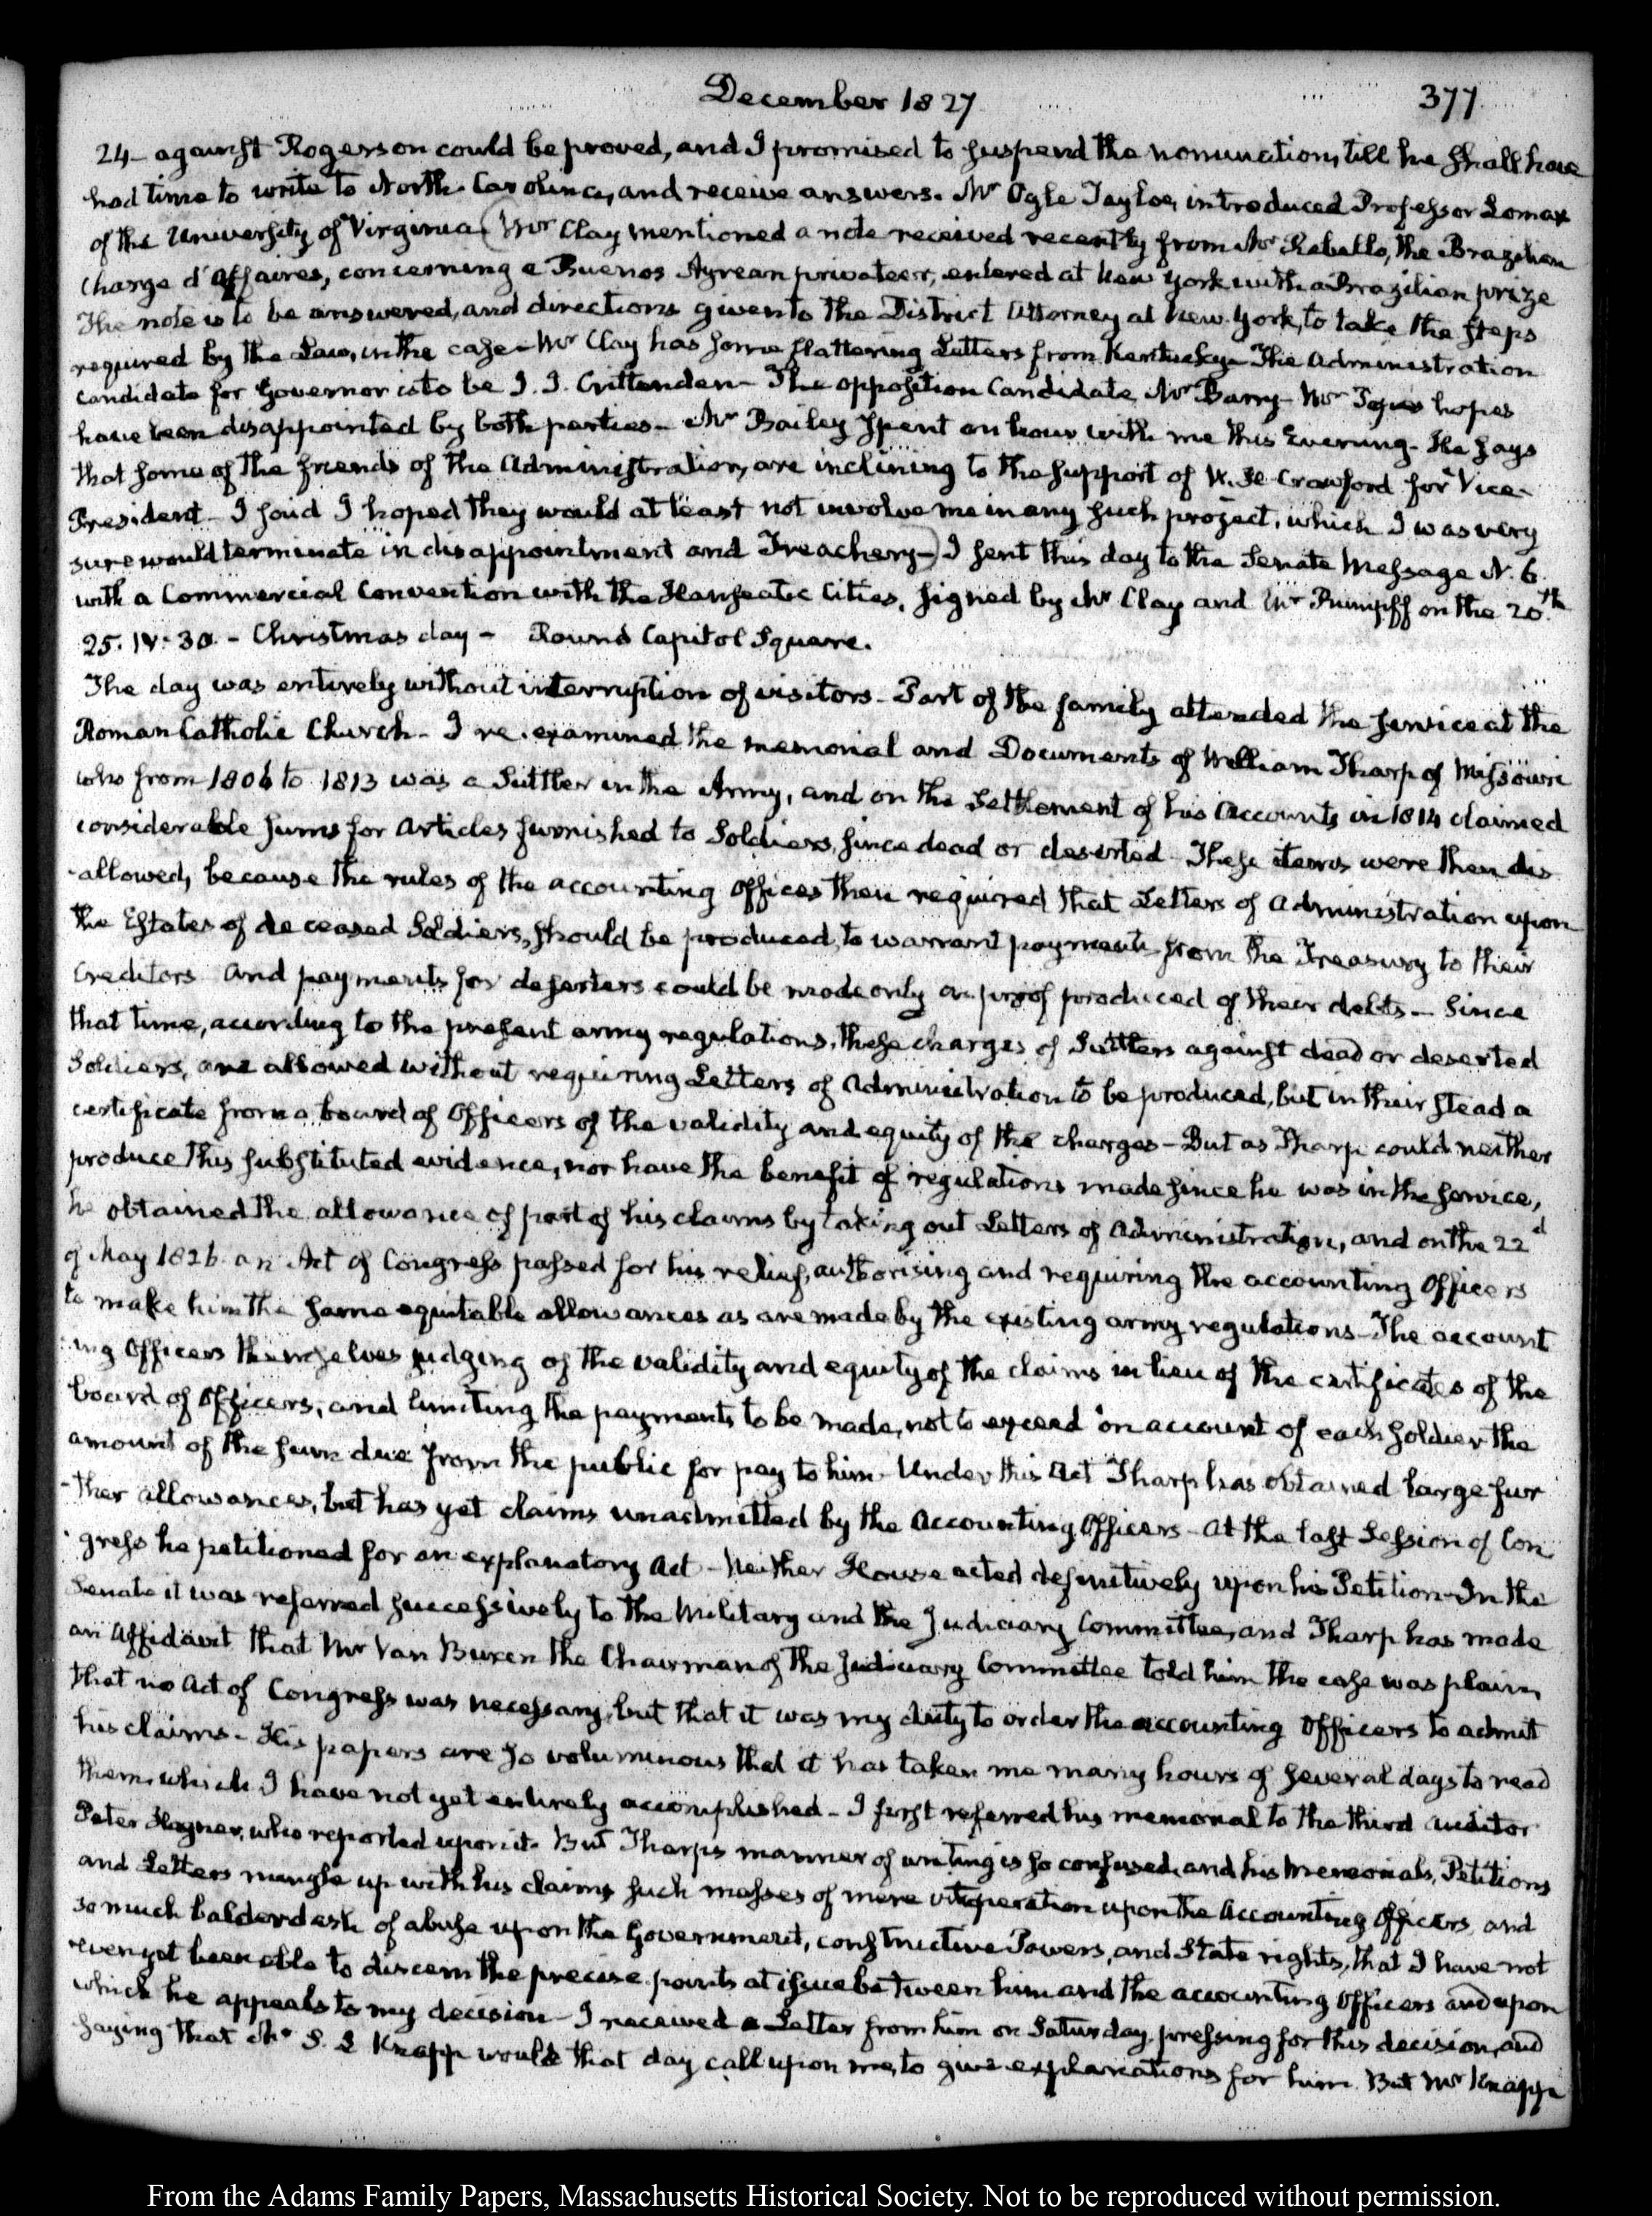 December 1827
377
24- against Rogerson could be proved, and I promised to suspend the nomination, till he shall have
had time to write to North-Carolina, and receive answers. Mr Ogle Tayloe, introduced Professor Lomax
of the University of Virginia (Mr Clay mentioned a note received recently from Mr Rebello, the Brazilian
Charge d'Affaires, concerning a Buenos Ayrean privateer, entered at New York with a Brazilian prize
The note is to be answered, and directions given to the District Attorney at New-York, to take the steps
required by the Law, in the case - Mr Clay has some flattering Letters from Kentucky - The Administration
Candidate for Governor is to be J. J. Crittenden - The opposition Candidate, Mr Barry - Mr hopes
have been disappointed by both parties - Mr Bailey spent an hour with me this Evening - He says
that some of the friends of the Administration, are inclining to the support of W. H. Crawford for Vice-
President - I said I hoped they would at least not involve me in any such project, which I was very
sure would terminate in disappointment and Treachery -) I sent this day to the Senate Message N. 6.
with a Commercial Convention with the Hanseatic Cities, signed by Mr Clay and Mr Rumpff on the 20.th
25. IV: 30. - Christmas day - Round Capitol Square.
The day was entirely without interruption of visitors - Part of the family attended the service at the
Roman Catholic Church - I re-examined the memorial and Documents of William Tharp of Missouri
who from 1806 to 1813 was a Suttler in the Army, and on the Settlement of his Accounts in 1814 claimed
considerable sums for Articles furnished to Soldiers, since dead or deserted. These items were then dis
-allowed, because the rules of the accounting Offices then required that Letters of Administration upon
the Estates of deceased Soldiers, should be produced, to warrant payments from the Treasury to their
Creditors and payments for deserters could be made only on proof produced of their debts - Since
that time, according to the present army regulations, these charges of Suttlers against dead or deserted
Soldiers, are allowed without requiring Letters of Administration to be produced, but in their stead a
certificate from a board of Officers of the validity and equity of the charges - But as Tharp could neither
produce this substituted evidence, nor have the benefit of regulations made since he was in the service,
he obtained the allowance of part of his claims by taking out Letters of Administration, and on the 22d
of May 1826. an Act of Congress passed for his relief, authorising and requiring the accounting Officers
to make him the same equitable allowances as are made by the existing army regulations - The account
ing Officers themselves judging of the validity and equity of the claims in lieu of the certificates of the
board of Officers, and limiting the payments to be made, not to exceed on account of each soldier the
amount of the sum due from the public for pay to him. Under this Act Tharp has obtained large fur
-ther allowances, but has yet claims unadmitted by the Accounting Officers - At the last Session of Con
gress he petitioned for an explanatory Act - Neither House acted definitively upon his Petition - In the
Senate it was referred successively to the Military and the Judiciary Committee, and Tharp has made
an Affidavit that Mr Van Buren the Chairman of the Judiciary Committee told him the case was plain,
that no Act of Congress was necessary, but that it was my duty to order the accounting Officers to admit
his claims - His papers are so voluminous that it has taken me many hours of several days to read
them, which I have not yet entirely accomplished - I first referred his memorial to the third Auditor
Peter Hagner, who reported upon it. But Tharp's manner of writing is so confused, and his Memorials, Petitions
and Letters mingle up with his claims such masses of mere vituperation upon the Accounting Officers, and
so much balderdash of abuse upon the Government, constructive Powers, and State rights, that I have not
even yet been able to discern the precise points at issue between him and the accounting Officers and upon
which he appeals to my decision - I received a Letter from him on Saturday, pressing for this decision, and
saying that Mr S. L Knapp would that day call upon me, to give explanations for him. But Mr Knapp
From the Adams Family Papers, Massachusetts Historical Society. Not to be reproduced without permission.